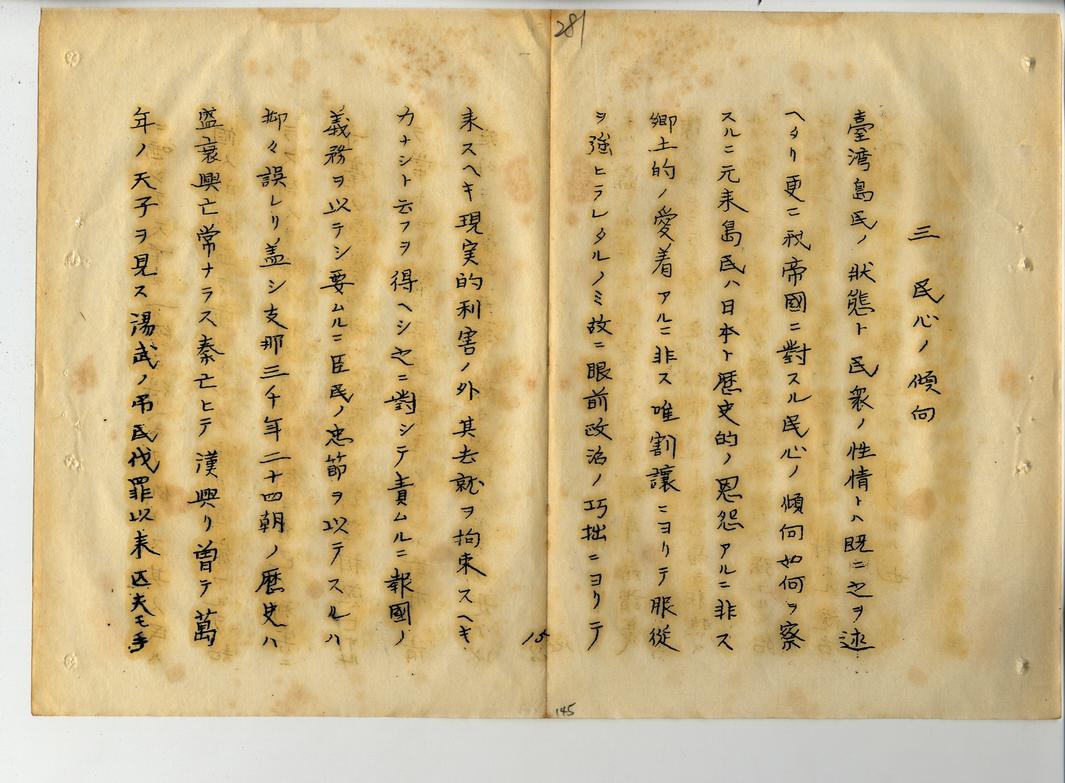 281
三 民心ノ傾向
臺湾島民ノ狀態ト民衆ノ性情トハ既ニ之ヲ述
ヘタリ更ニ我帝國ニ對スル民心ノ傾向如何ヲ察
スルニ元来島民ハ日本ト歴史的ノ恩怨アルニ非ス
郷土的ノ愛着アルニ非ス唯割讓ニヨリテ服從
ヲ強ヒラレタルノミ故ニ眼前政治ノ巧拙ニヨリテ
15
145
来スヘキ現実的利害ノ外其去就ヲ拘束スヘキ
力ナシト云フヲ得ヘシ之ニ對シテ責ムルニ報國ノ
義務ヲ以テシ要ムルニ臣民ノ忠節ヲ以テスルハ
抑々誤レリ蓋シ支那三千年二十四朝ノ歴史ハ
盛衰興亡常ナラス秦亡ヒテ漢興リ曽テ萬
年ノ天子ヲ見ス湯武ノ吊民伐罪以来匹夫モ手